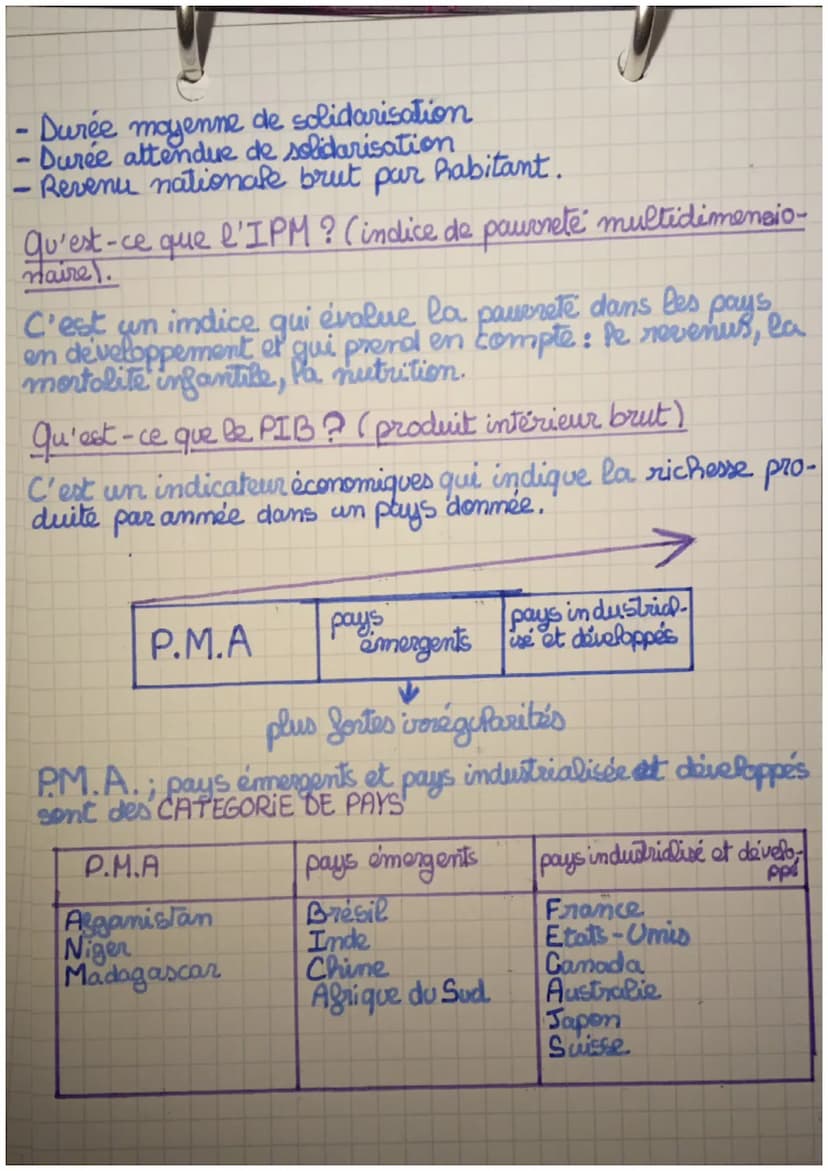 - Durée moyenne de solidarisation
- Durée attendue de solidarisation
- Revenu nationale brut par habitant.
Qu'est-ce que l'IPM ? (indice de pauvreté multidimensio-
naire).
C'est un indice qui évalue la pauvreté dans les pays
en développement et qui prend en compte : le revenus, la
mortalité infantile, la nutrition.
Qu'est-ce que le PIB ? (produit intérieur brut)
C'est un indicateur économiques qui indique la richesse pro-
duite par année dans un pays donnée.
P.M.A
pays
émergents
pays industrial-
isé et développés
plus fortes irrégularités
P.M.A. ; pays émergents et pays industrialisée et développés
sont des CATEGORIE DE PAYS
P.M.A
pays émergents
pays industrialisé et dévelo-
ppé
Afganistan
Niger
Madagascar
Brésil
Inde
Chine
Afrique du Sud
France
Etats-Unis
Canada
Australie
Japon
Suisse